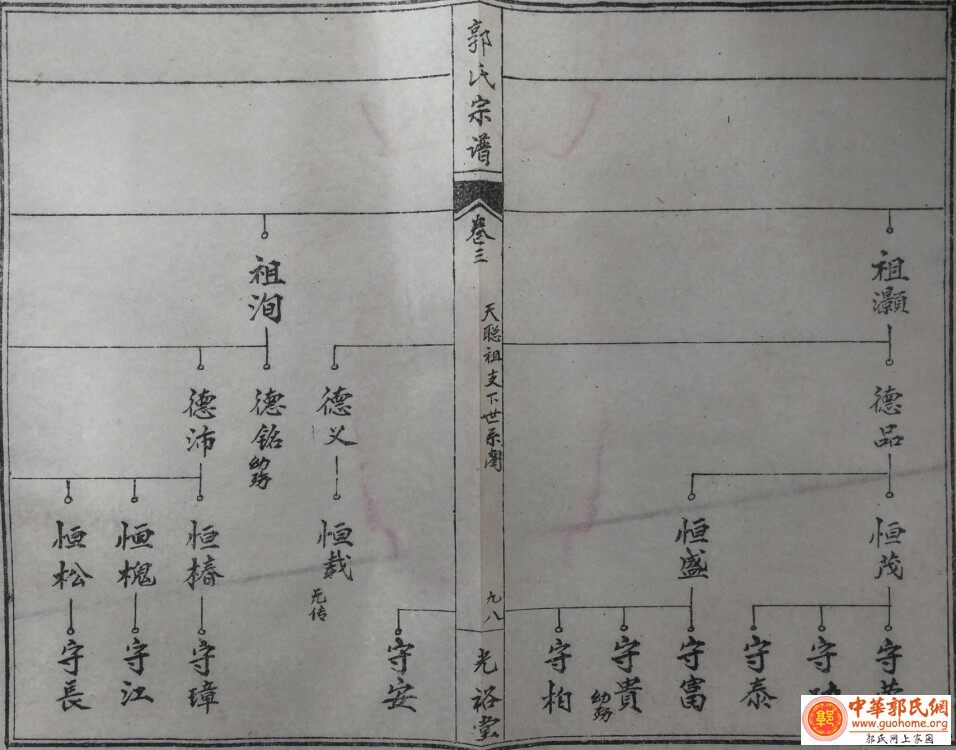 郭氏宗谱
卷三
天聪祖支下世系图
九八
光裕堂
祖灏
德品
恒茂
恒盛
守泰
守富
守貴
幼殇
守柏
守安
祖洵
德义
德铭
幼殇
德沛
恒载
无传
恒椿
恒槐
恒松
守璋
守江
守長
中華郭氏網
www.guohome.org
郭氏网上家园